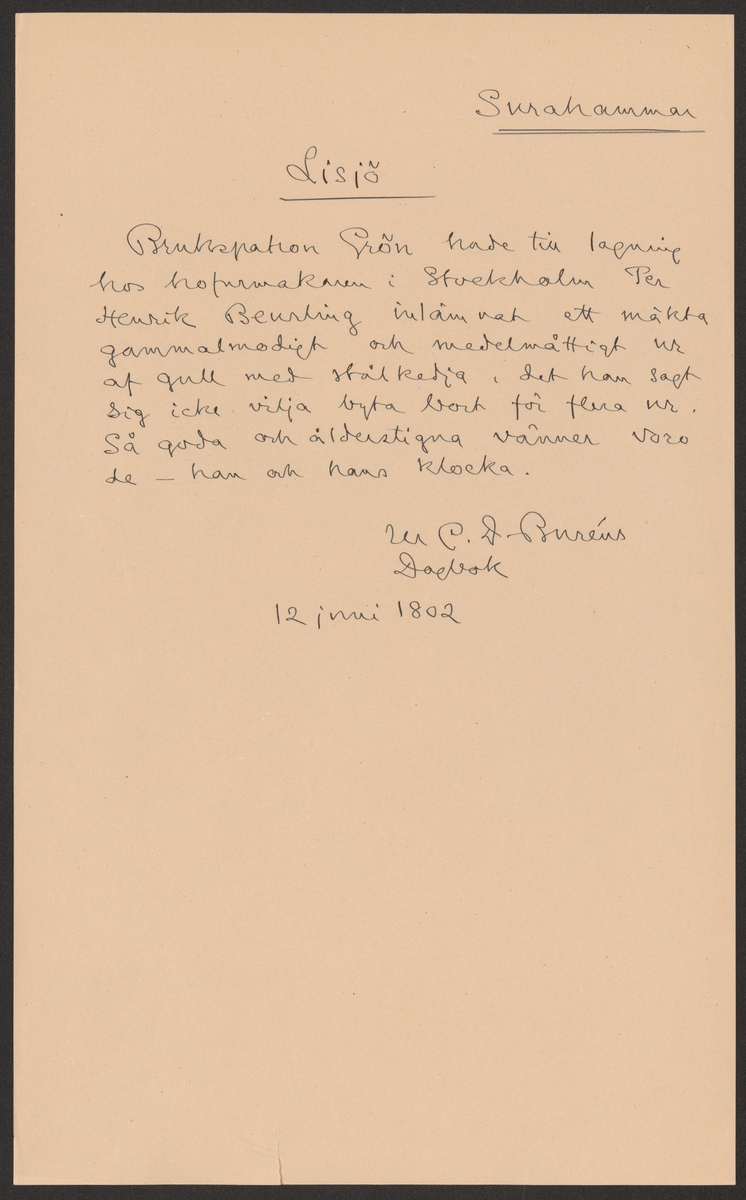 Surahammar
Lisjö
Brukspatron Grön hade till lagning
hos hofurmakaren i Stockholm Per
Henrik Beurling inlämnat ett mäkta
gammalmodigt och medelmåttigt ur
af gull med stålkedja, det han sagt
sig icke vilja byta bort för flera ur.
Så goda och ålderstigna vänner voro
de – han och hans klocka.
Ur C. D. Buréns
Dagbok
12 juni 1802